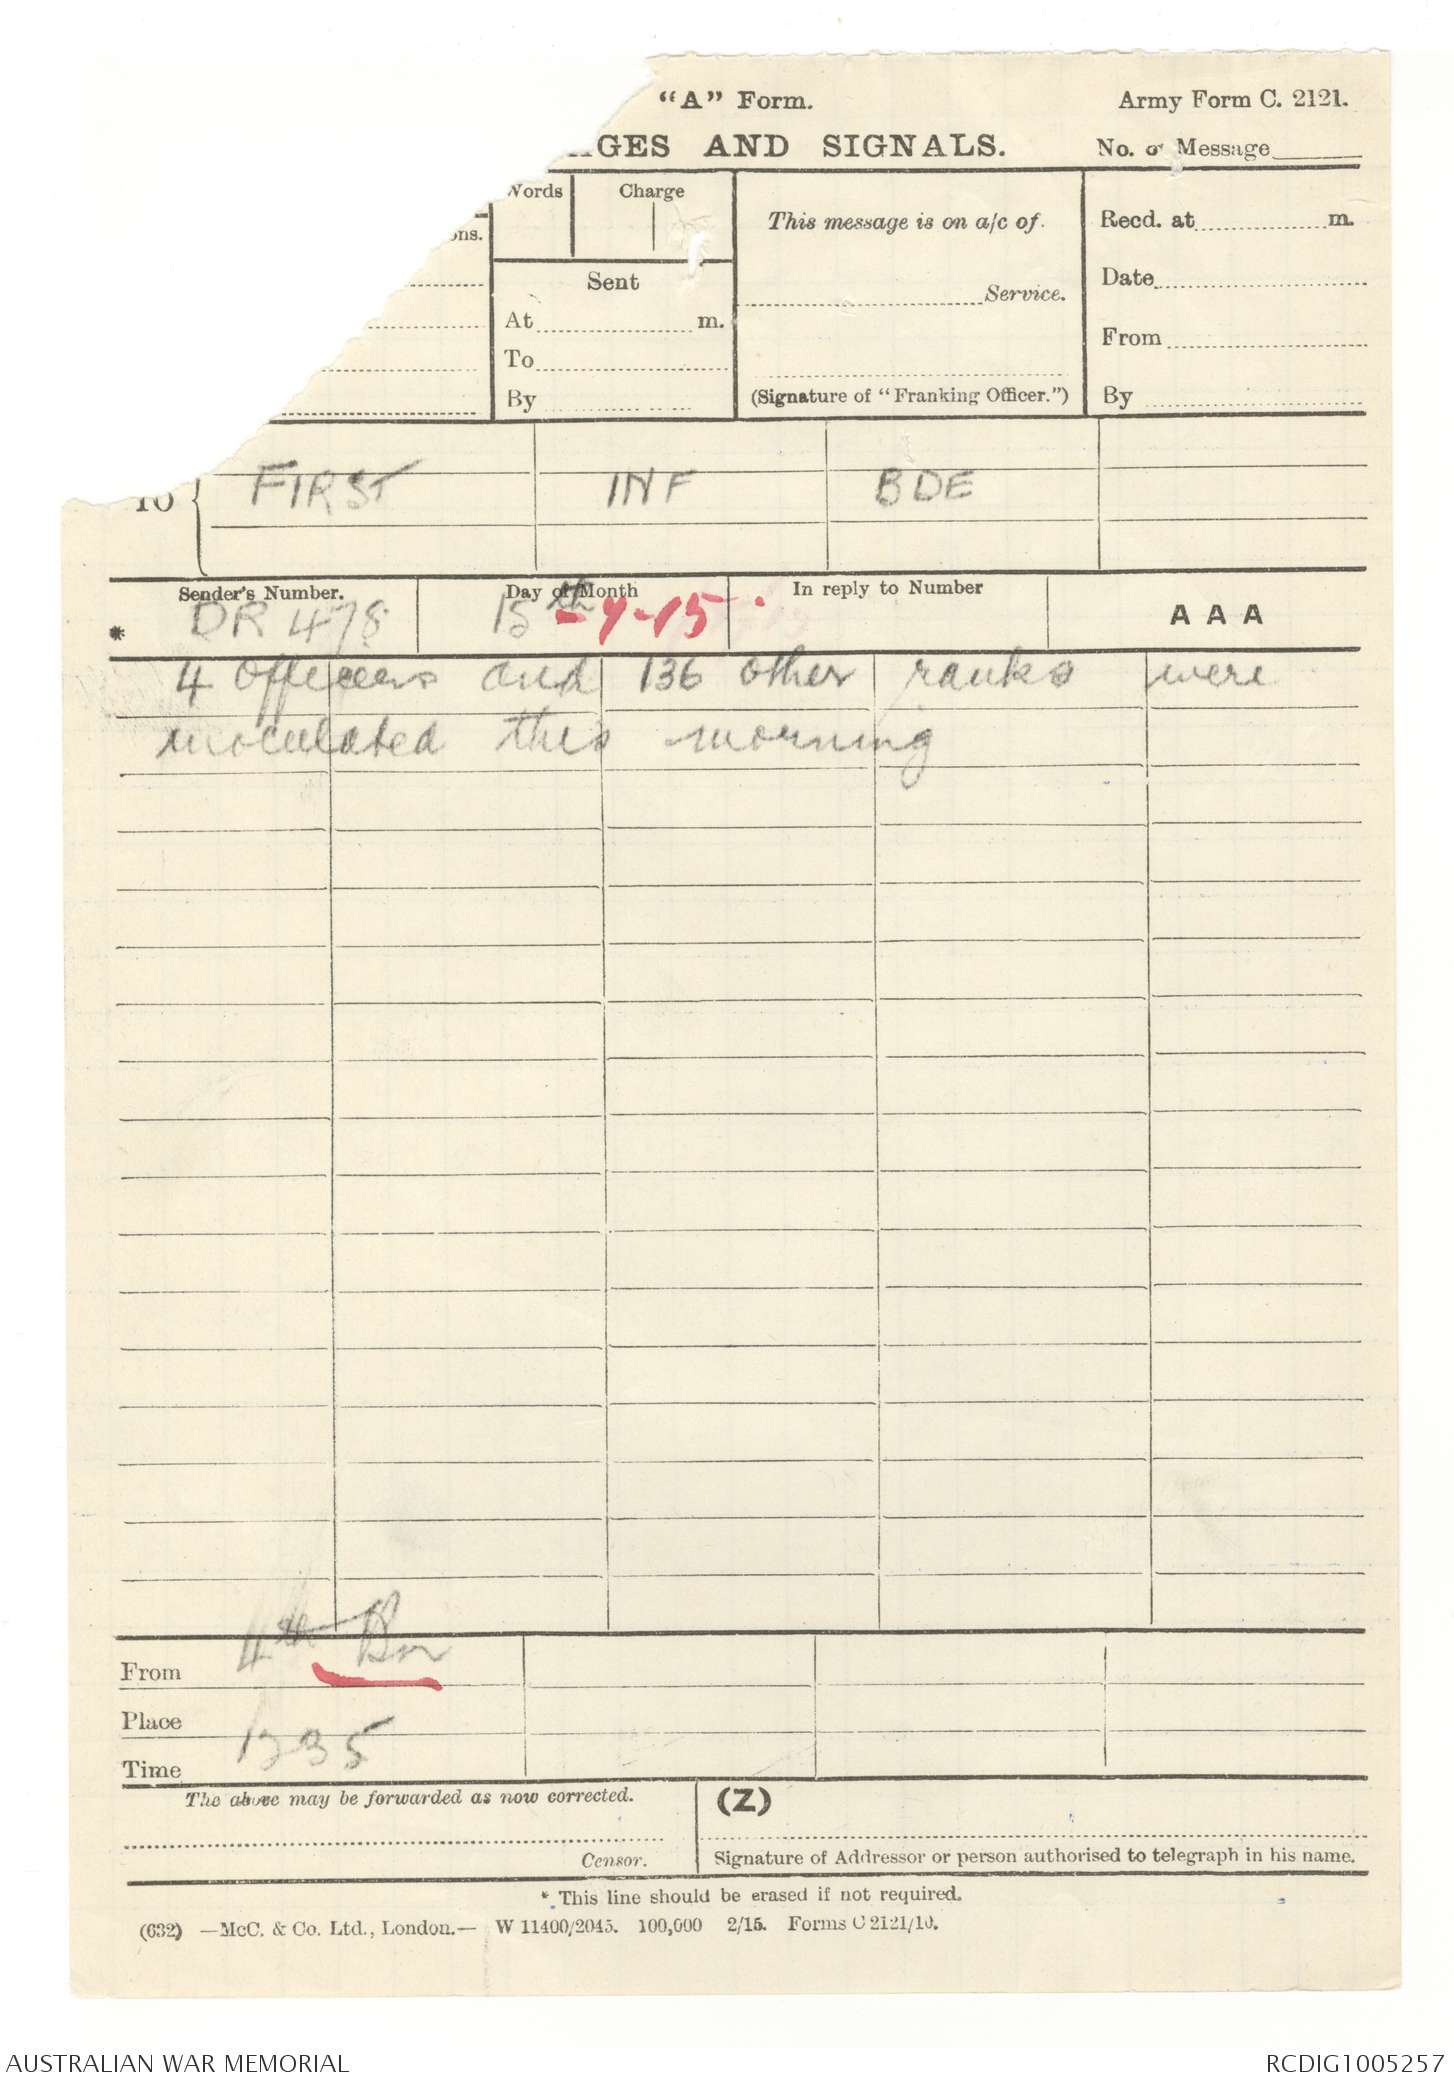 "A" Form.
Army Form C. 2121.
AGES AND SIGNALS.
No. of Message
Words
Charge
ons.
This message is on a/c of.
Recd. at m.
Sent
Date
Service.
At m.
From
To
(Signature of "Franking Officer.")
By
By
TO
FIRST INF BDE
Sender's Number.
Day of Month
In reply to Number
AAA
* DR 478
15th -7-15
4 Officers and 136 other ranks were
inoculated this morning
From
4th Bn
Place
Time
1235
The above may be forwarded as now corrected.
(Z)
Censor.
Signature of Addressor or person authorised to telegraph in his name.
* This line should be erased if not required.
(632) —McC. & Co. Ltd., London.— W 11400/2045. 100,000 2/15. Forms C 2121/10.
AUSTRALIAN WAR MEMORIAL
RCDIG1005257